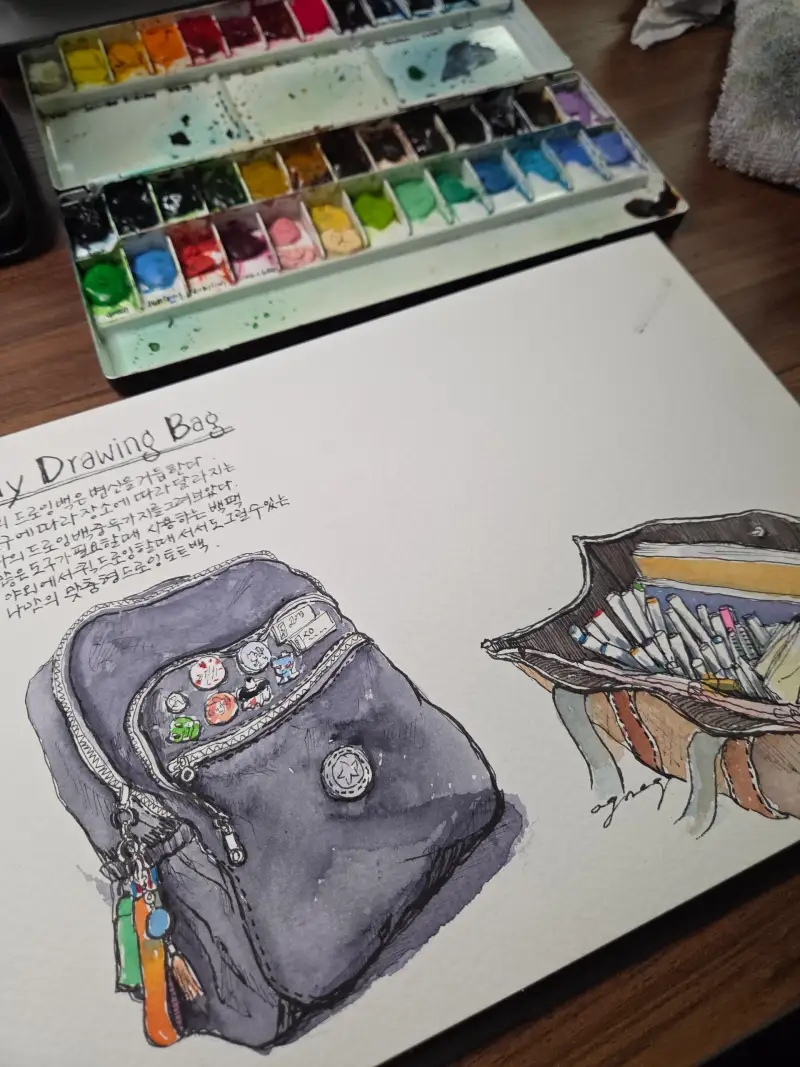 My Drawing Bag
의 드로잉백은 변신을 거듭한다.
구에 따라 장소에 따라 달라지는
나의 드로잉백중 두가지를 그려보았다.
많은 도구가 필요할때 사용하는 백팩
야외에서 퀵드로잉할때 서서도 그릴수있는
나만의 맞춤형 드로잉 토트백.
agnes